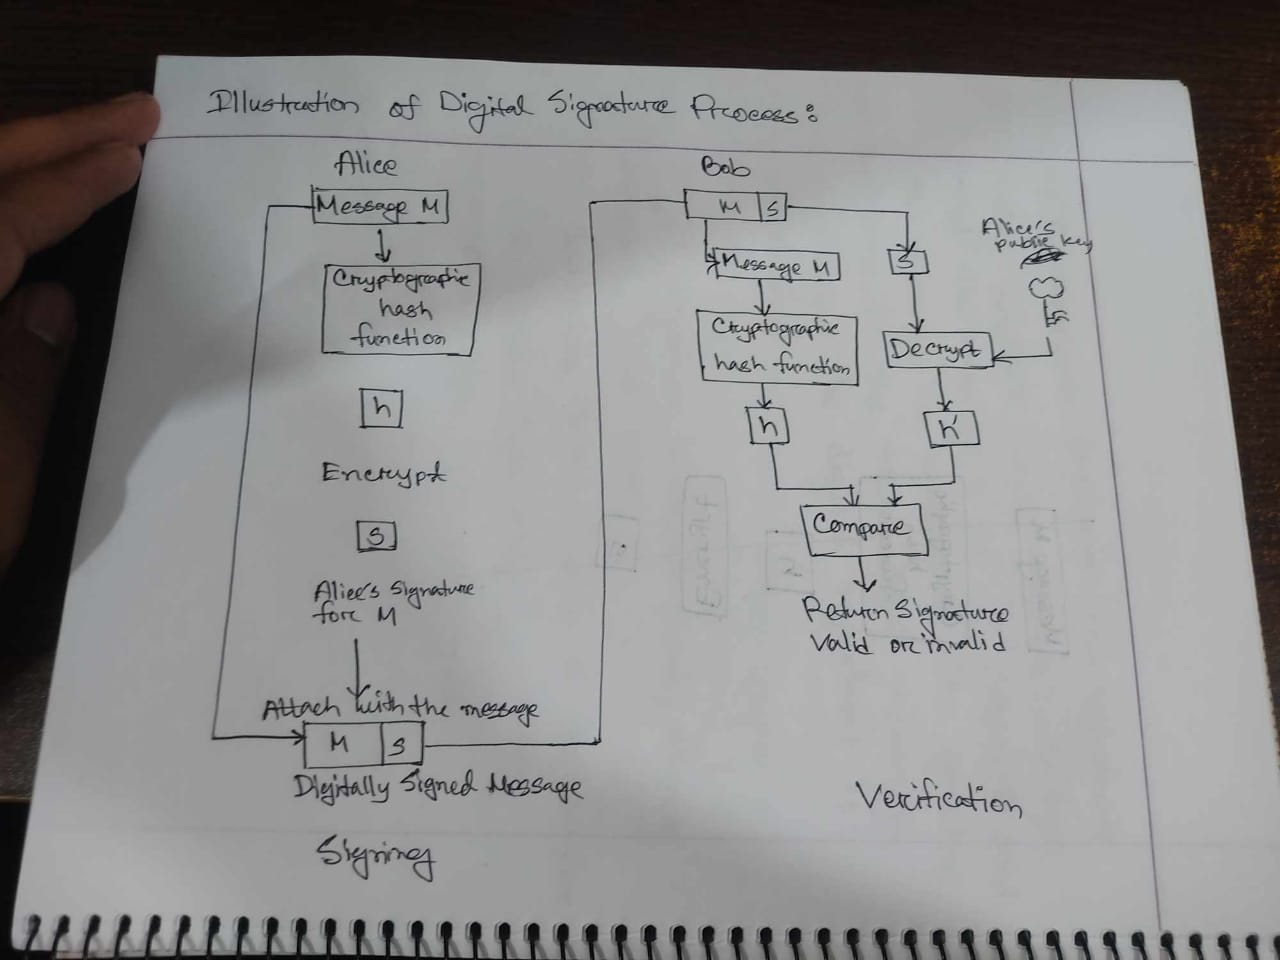 Illustration of Digital Signature Process:
Alice
Message M
Cryptographic
hash
function
h
Encrypt
S
Alice's Signature
for M
Attach with the message
M S
Digitally Signed Message
Signing
Bob
M S
Message M
Cryptographic
hash function
h
S
Alice's
public key
Decrypt
h'
Compare
Return Signature
Valid or invalid
Verification